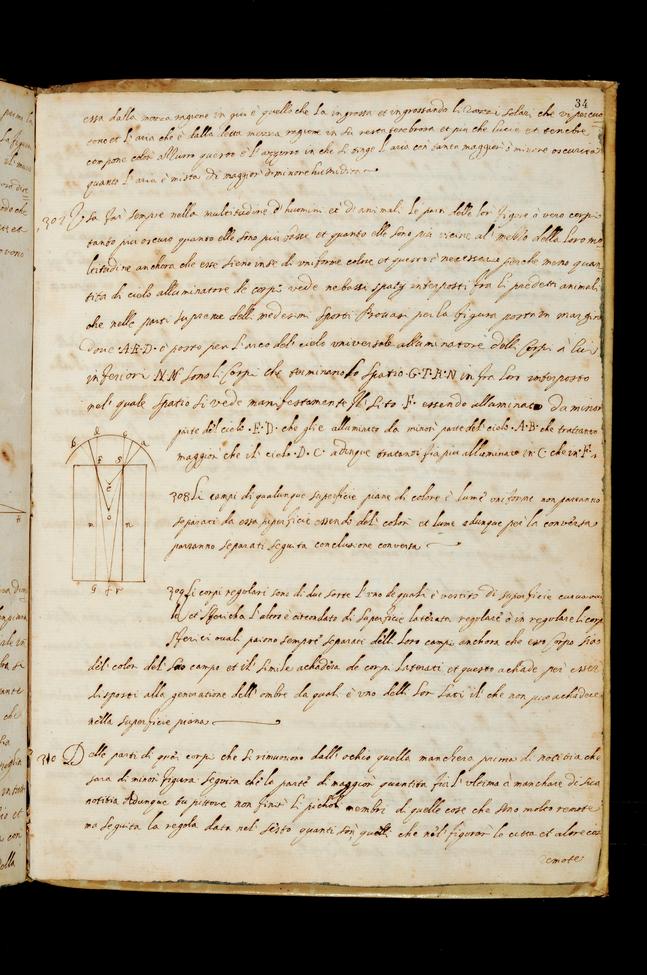 34
essa dalla mezza ragione in giu è quello che la ingrossa et ingrossando li razzi solari che vi percuo
tono et l'aria che è dalla detta mezza regione in su resta tenebrosa et perche lucie et tenebre
compone color azzurro questo è l'azzurro in che si tinge l'aria con tanta maggior ò minore oscurità
quanto l'aria è mista di maggior ò minore humidita
307 Usa far sempre nella multitudine d'huomini et di animali le parti delle lor figure ò vero corpi
tanto piu oscure quanto elle sono piu basse et quanto elle sono piu vicine al mezzo della loro mo
ltitudine anchora che esse sieno in se di uniforme colore et questo è necessario perche meno quan
tita di cielo alluminatore de corpi vede ne bassi spazij interposti fra li predetti animali
che nelle parti supreme delli medesimi sporti Provasi per la figura posta in margine
dove .A.B.D. è posto per l'arco del cielo universale alluminatore delli corpi à lui
inferiori N.N. sono li corpi che terminano lo spatio .G.T.R.N in fra loro interposto
nel quale spatio si vede manifestamente il sito .F. essendo alluminato da minor
parte del cielo .E.D. che gli è alluminato da minor parte del cielo .A.B. che tratterà
maggiore che il cielo .D.C. adunque sia piu alluminato in .C. che in .F.
b d c a
r s
e
o
n n
g f r
308 Li campi di qualunque superficie piane di colore è lume uniforme non parranno
separati da essa superficie essendo del color et lume adunque per la conversa
parranno separati seguita conclusione conversa
309 Li corpi regolari sono di due sorte l'uno de quali è vestito di superficie curva ova
le et sfericha l'altro è circondato di superficie laterata regolare ò in regolare li corpi
sferici ovali paiono sempre separati dalli loro campi anchora che esso corpo sia
del color del suo campo et il simile achaderà de corpi laterati et questo achade per esser
disposti alla generatione dell'ombre da quali è uno delli lor lati il che non puo achadere
nella superficie piana
310 Delle parti di quei corpi che si rimuovono dall'ochio quella manchera prima di notitia che
sara di minor figura. Seguita che la parte di maggior quantita fia l'ultima à manchare di sua
notitia Adunque tu pittore non finir li picholi membri di quelle cose che sono molto remote
ma seguita la regola data nel sesto quanti son quelli che nel figurar le citta et altre cose
remote